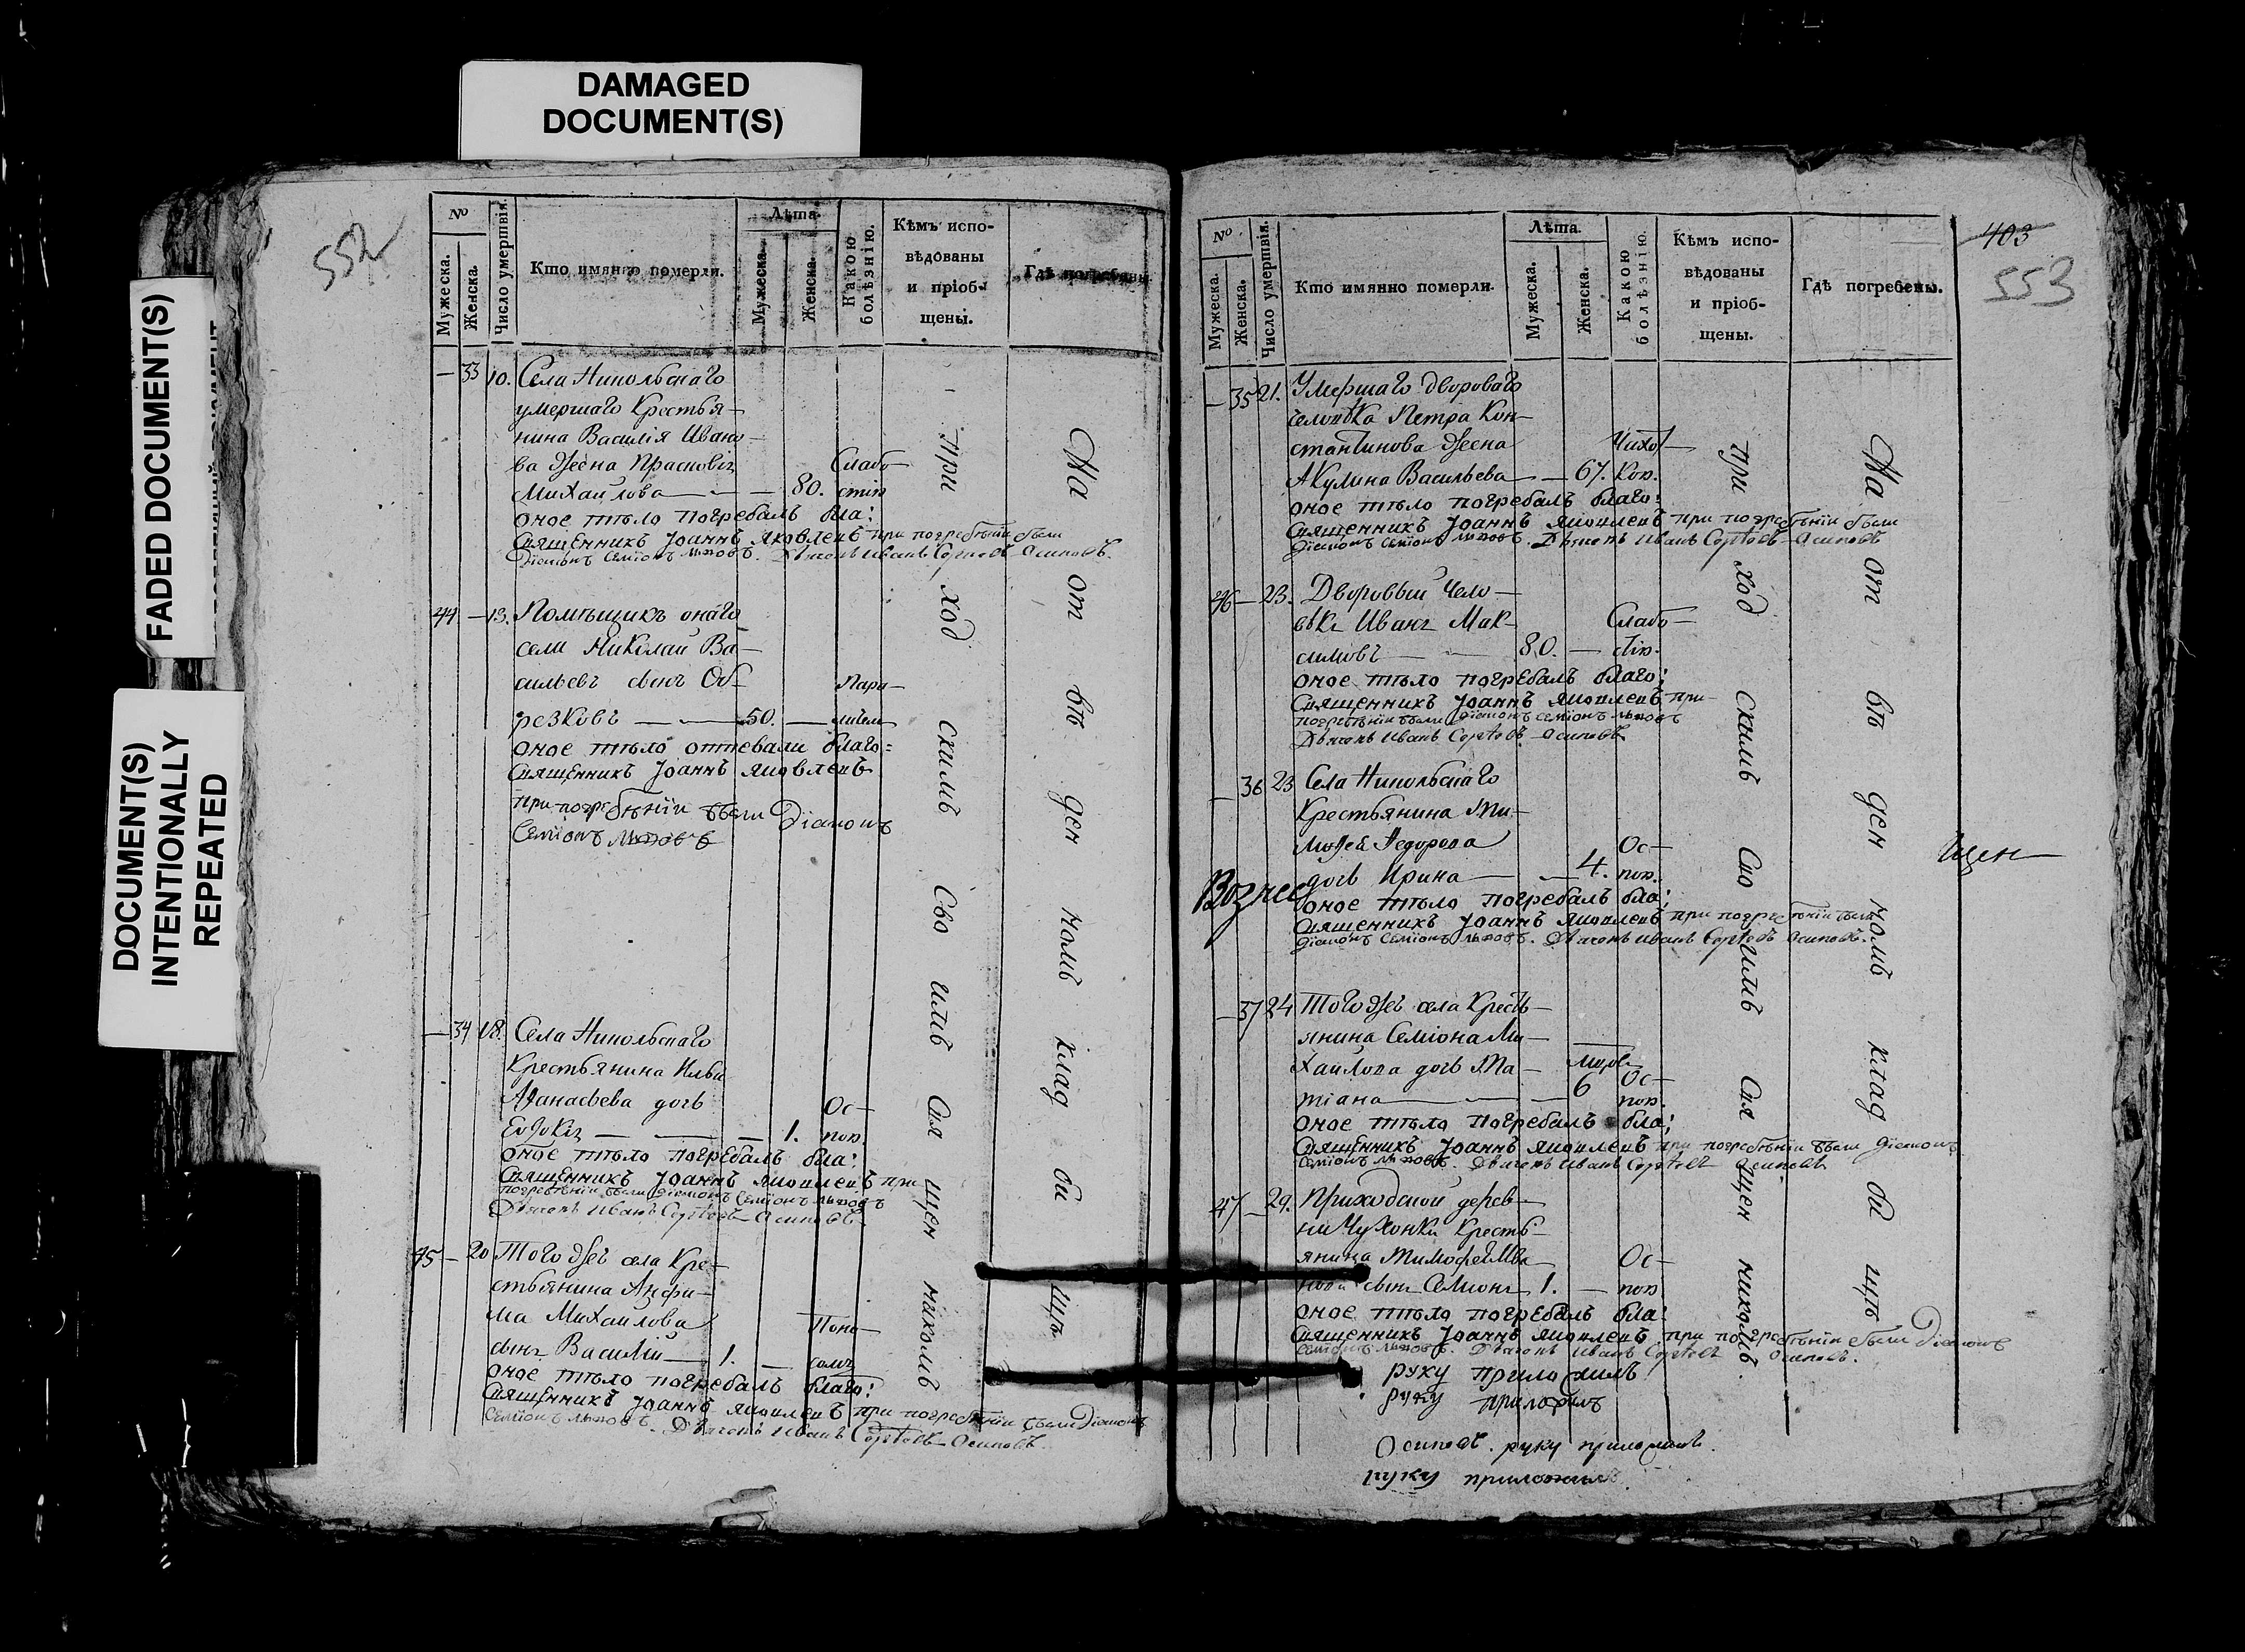 DAMAGED
DOCUMENT(S)
FADED DOCUMENT(S)
DOCUMENT(S)
INTENTIONALLY
REPEATED
552
№
Мужеска.
Женска.
Число умершвія.
Кто имянно померли.
Лѣта.
Мужеска.
Женска.
Какою
болѣзнію.
Кѣмъ испо-
вѣдованы
и пріоб-
щены.
Гдѣ погребены.
— 33 10. Села Никольскаго
умершаго Крестья-
нина Василія Ивано-
ва жена Прасковія Слабо-
Михайлова — — 80. стію
оное тѣло погребалъ бла:
Священникъ Іоаннъ Яковлевъ при погребѣніи были
Діаконъ Семіонъ Львовъ. Дьячекъ Иванъ Сергѣевъ Осиповъ.
44 — 13. Помѣщикъ онаго
села Николай Ва-
сильевъ сынъ Об- Пара-
резковъ — 50. — личем
оное тѣло отпевали благо:
Священникъ Іоаннъ Яковлевъ
при погребѣніи были Діаконъ
Семіонъ Львовъ
— 34 18. Села Никольскаго
Крестьянина Ильи
Афанасьева дочь Ос-
Евдокія — — 1. пою.
оное тѣло погребалъ бла:
Священникъ Іоаннъ Яковлевъ при
погребѣніи были Діаконъ Семіонъ Львовъ
Дьячекъ Иванъ Сергѣевъ Осиповъ.
45 — 20 Того же села Кре-
стьянина Анфи-
ма Михайлова Поно-
сынъ Василій — 1. — сомъ
оное тѣло погребалъ благо:
Священникъ Іоаннъ Яковлевъ при погребѣніи были Діаконъ
Семіонъ Львовъ. Дьячекъ Иванъ Сергѣевъ Осиповъ.
при ход скимъ Сво имъ Свя щен никомъ
На от вѣ ден номъ клад би щѣ
403
553
№
Мужеска.
Женска.
Число умершвія.
Кто имянно померли.
Лѣта.
Мужеска.
Женска.
Какою
болѣзнію.
Кѣмъ испо-
вѣдованы
и пріоб-
щены.
Гдѣ погребены.
— 35 21. Умершаго дворового
человѣка Петра Кон-
стантинова жена Чахот-
Акулина Васильева — 67. кою.
оное тѣло погребалъ благо:
Священникъ Іоаннъ Яковлевъ при погребѣніи были
Діаконъ Семіонъ Львовъ. Дьячекъ Иванъ Сергѣевъ Осиповъ
46 — 23. Дворовый Чело-
вѣкъ Иванъ Мак- Слабо-
симовъ — 80. — стію.
оное тѣло погребалъ благо:
Священникъ Іоаннъ Яковлевъ при
погребѣніи были Діаконъ Семіонъ Львовъ
Дьячекъ Иванъ Сергѣевъ Осиповъ
— 36 23 Села Никольскаго
Крестьянина Ти-
мофея Федорова Ос-
дочь Ирина — 4. пою.
Вознес
щен
оное тѣло погребалъ бла:
Священникъ Іоаннъ Яковлевъ при погребѣніи были
Діаконъ Семіонъ Львовъ. Дьячекъ Иванъ Сергѣевъ Осиповъ.
— 37 24 Того же села Кресть-
янина Семіона Ми-
хайлова дочь Та- Ос-
тіана — — 6 пою.
оное тѣло погребалъ бла:
Священникъ Іоаннъ Яковлевъ при погребѣніи были Діаконъ
Семіонъ Львовъ. Дьячекъ Иванъ Сергѣевъ Осиповъ
47 — 29. Приходской дерев-
ни Чухонки Кресть-
янина Тимофея Ива- Ос-
нова сынъ Семионъ 1. — пою
оное тѣло погребалъ бла:
Священникъ Іоаннъ Яковлевъ при погребѣніи были Діаконъ
Семіонъ Львовъ. Дьячекъ Иванъ Сергѣевъ Осиповъ.
руку приложилъ
руку приложилъ
Осиповъ. руку приложилъ.
руку приложилъ.
при ход скимъ Сво имъ Свя щен никомъ.
На от вѣ ден номъ клад би щѣ